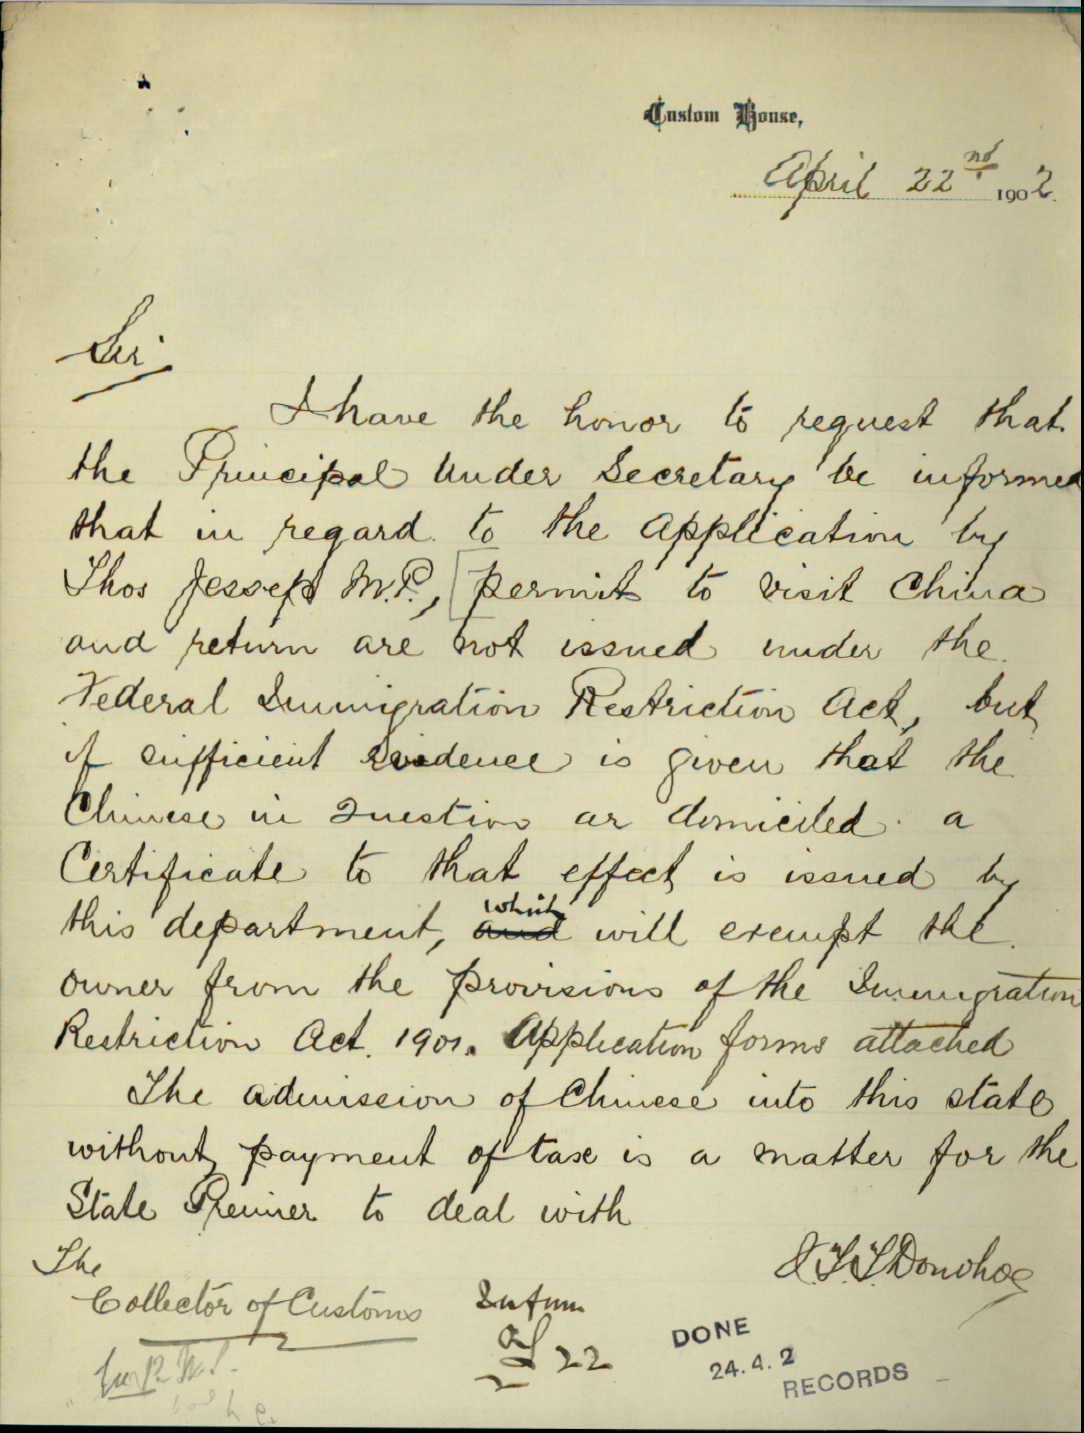 Custom House,
April 22nd 1902.
Sir
I have the honor to request that
the Principal Under Secretary be informed
that in regard to the application by
Thos Jessep M.P., [permits to visit China
and return are not issued under the
Federal Immigration Restriction Act, but
if sufficient evidence is given that the
Chinese in Question ar domiciled a
Certificate to that effect is issued by
which
this department, and will exempt the
owner from the provisions of the Immigration
Restriction Act. 1901. Application forms attached
The admission of Chinese into this state
without payment of tax is a matter for the
State Premier to deal with
J.T.T. Donohoe
The
Collector of Customs
Inform
22
DONE
24.4.2
RECORDS